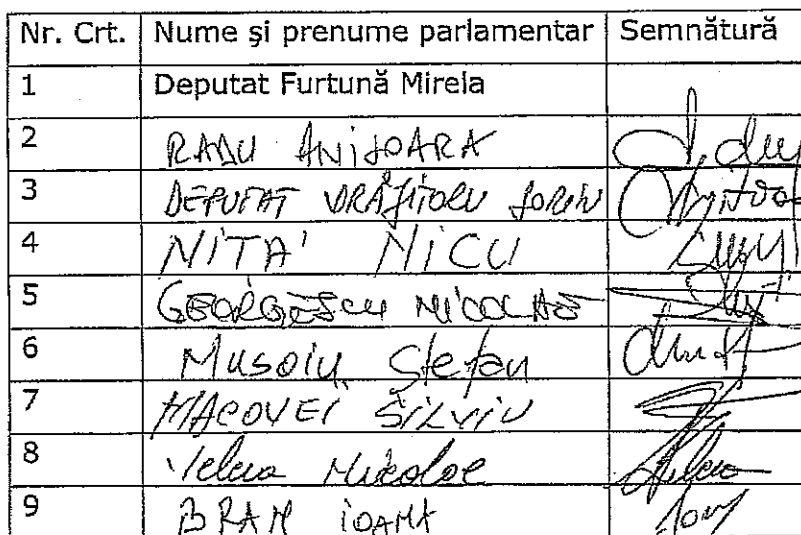 Nr. Crt. Nume și prenume parlamentar Semnătură
1 Deputat Furtună Mirela
2 RADU ANIȘOARA
3 DEPUTAT VRĂJITORU SORIN
4 NIȚĂ NICU
5 GEORGESCU NICOLAE
6 Musoiu Ștefan
7 MACOVEI SILVIU
8 Velcea Nicolae
9 BRAN IOANA